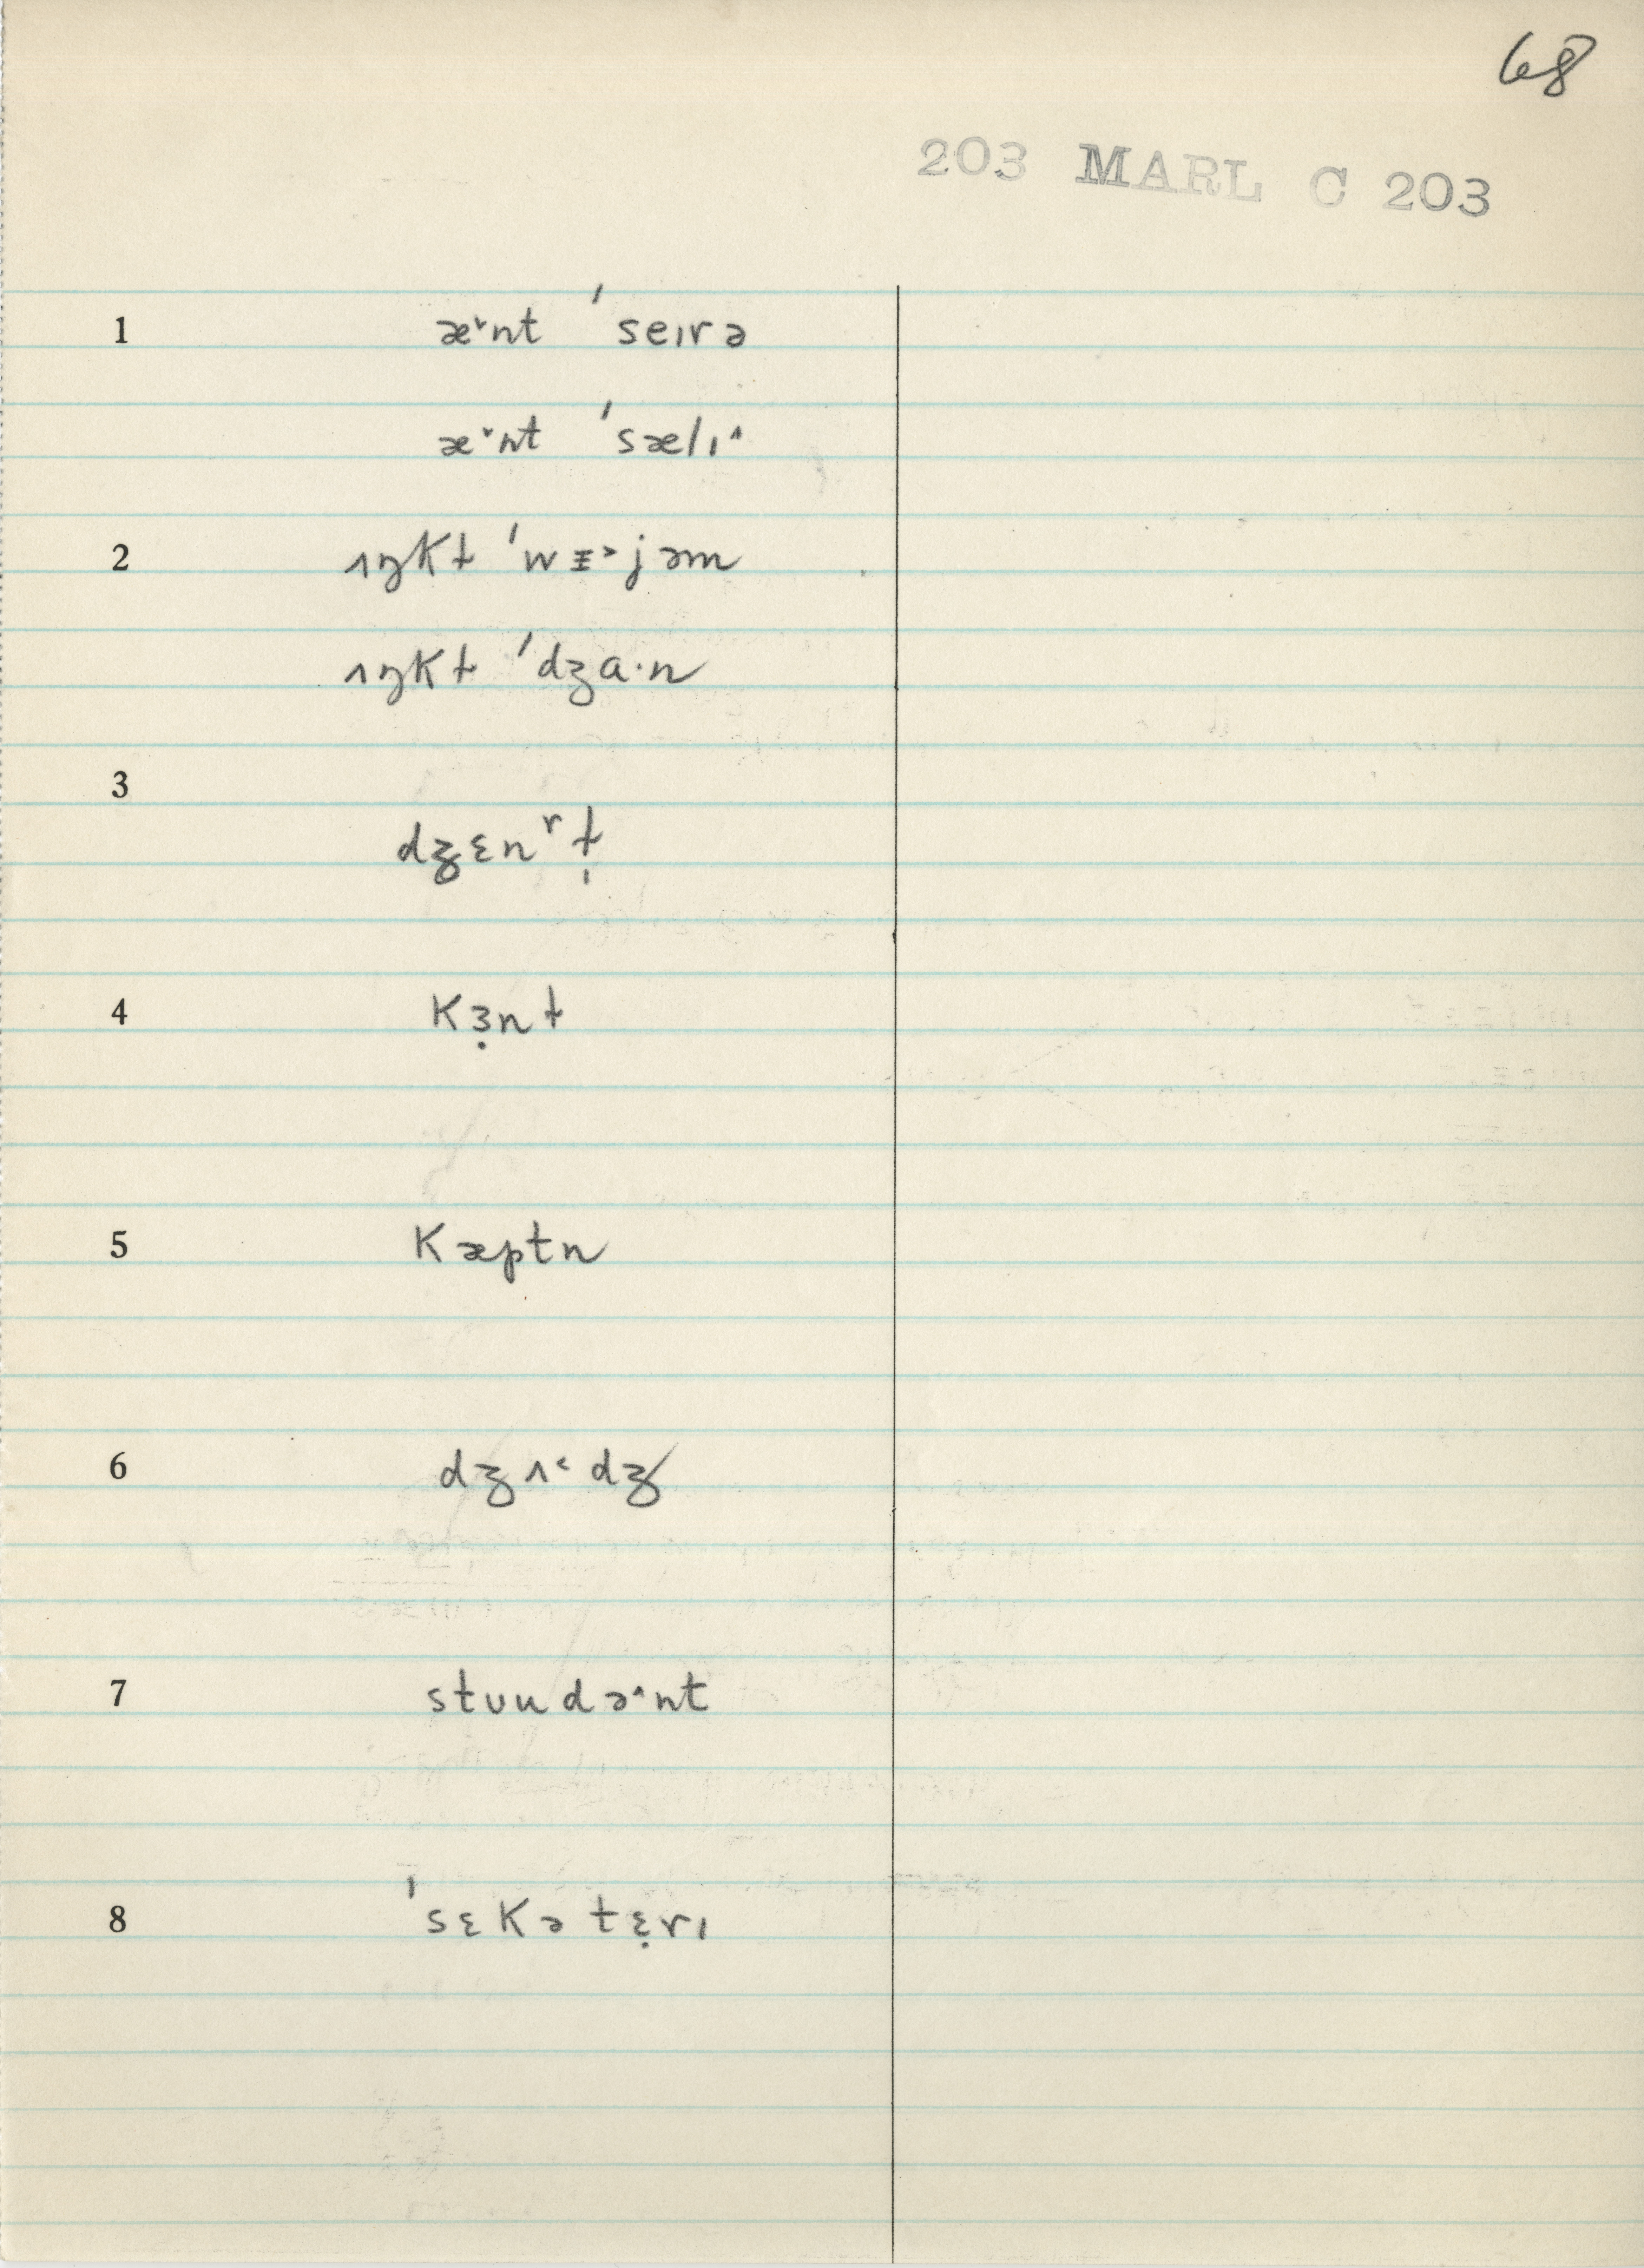 68
203 MARL C 203
1 æ˅nt ˈseɪrə
æ˅nt ˈsælɪ˄
2 ʌŋkɫ ˈwɪ˃jəm
ʌŋkɫ ˈdʒɑ·n
3 dʒɛnʳɫ̩
4 kɜ̣nɫ
5 kæptn
6 dʒʌ˂dʒ
7 stʊudə˄nt
8 ˈsɛkətɛ̣rɪ